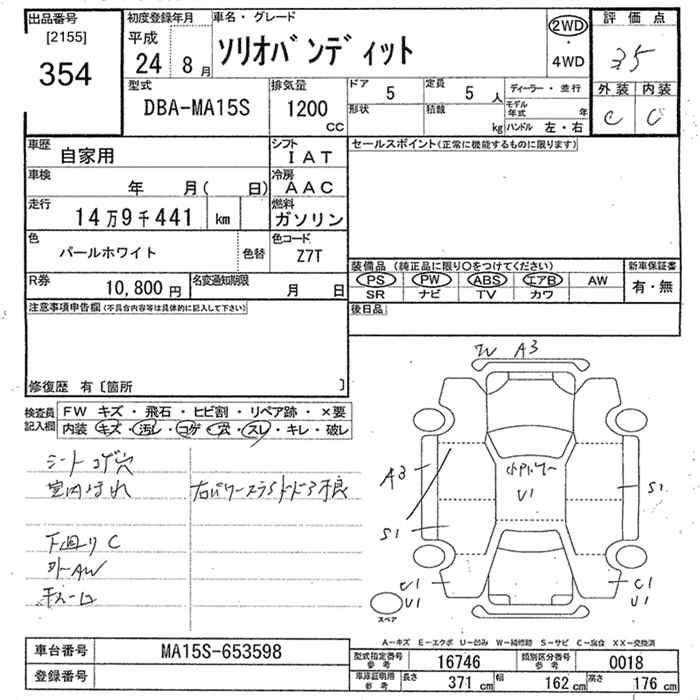 出品番号 初度登録年月 車名・グレード 評価点
[2155] 平成 ソリオバンディット 2WD ・ 4WD 35
354 24 8月
型式 排気量 ドア 5 定員 5人 ディーラー・並行 外装 内装
DBA-MA15S 1200 CC 形状 積載 kg モデル年式 年 ハンドル 左・右 C C
車歴 自家用 シフト IAT セールスポイント(正常に機能するものに限ります)
車検 年 月( 日) 冷房 AAC
走行 14万9千441 km 燃料 ガソリン
色 パールホワイト 色替 色コード Z7T
装備品 (純正品に限り○をつけてください) 新車保証書
R券 10,800円 名変通知期限 月 日 PS PW ABS エアB AW 有・無
SR ナビ TV カワ
注意事項申告欄(不具合内容等は具体的に記入して下さい) 後日品
修復歴 有〔箇所 〕
W A3
検査員記入欄 FW キズ・飛石・ヒビ割・リペア跡・×要
内装 キズ・汚レ・コゲ・穴・スレ・キレ・破レ
シートコゲ穴
室内よごれ 右パワースライドドア不良
下回りC
外AW
A3 S1
小デントU1
U1
S1
C1 U1 C1 U1
スペア
A-キズ E-エクボ U-凹み W-補修跡 S-サビ C-腐食 XX-交換済
車台番号 MA15S-653598 型式指定番号 参考 16746 類別区分番号 参考 0018
登録番号 車庫証明用 参考 長さ 371cm 幅 162cm 高さ 176cm